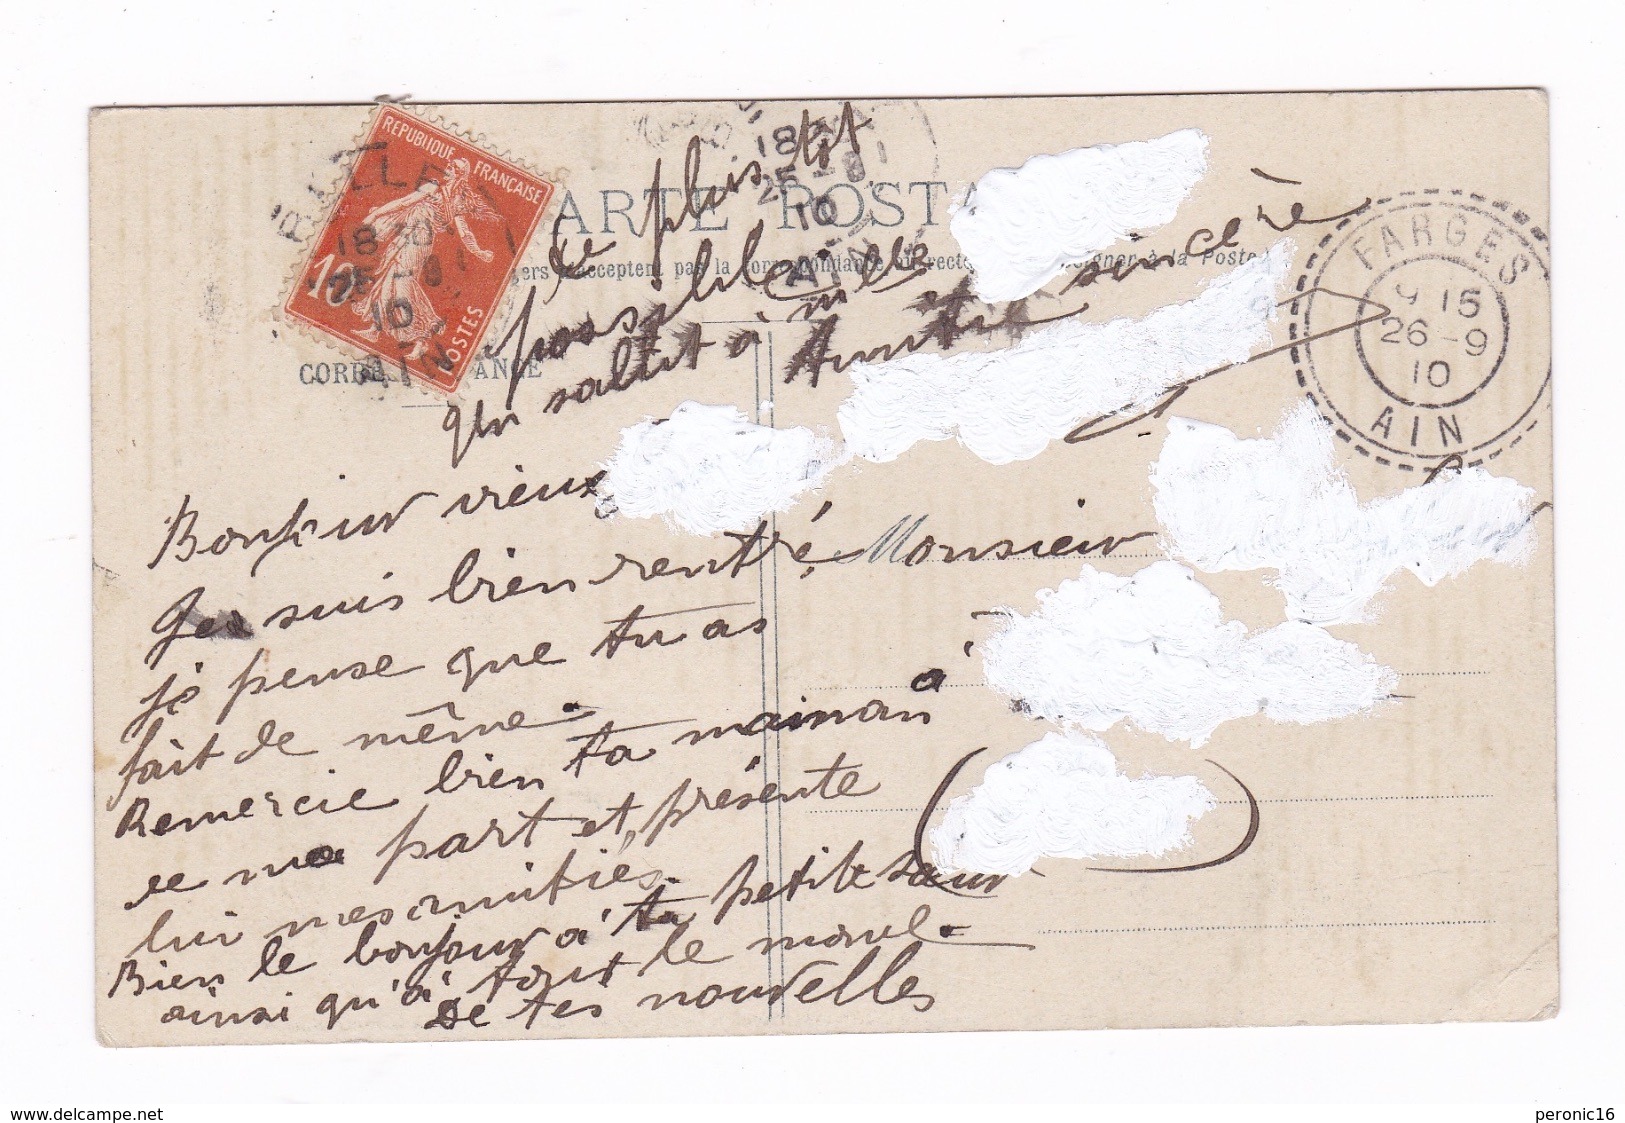 REPUBLIQUE FRANÇAISE
10
POSTES
18 30
25 -8
10
AIN
ARTE POSTA
ers n'acceptent pas la correspondance au recto à la Poste
CORRE ANCE
FARGES
9 15
26 -9
10
AIN
18
25 -8
10
AIN
Bonjour vieux
Je suis bien rentré,
je pense que tu as
fait de même.
Remercie bien ta maman
de ma part et présente
lui mes amitiés.
Bien le bonjour à ta petite sœur
ainsi qu'à tout le monde.
De tes nouvelles
le plus tôt
possible
amitié sincère
Monsieur
à
www.delcampe.net
peronic16